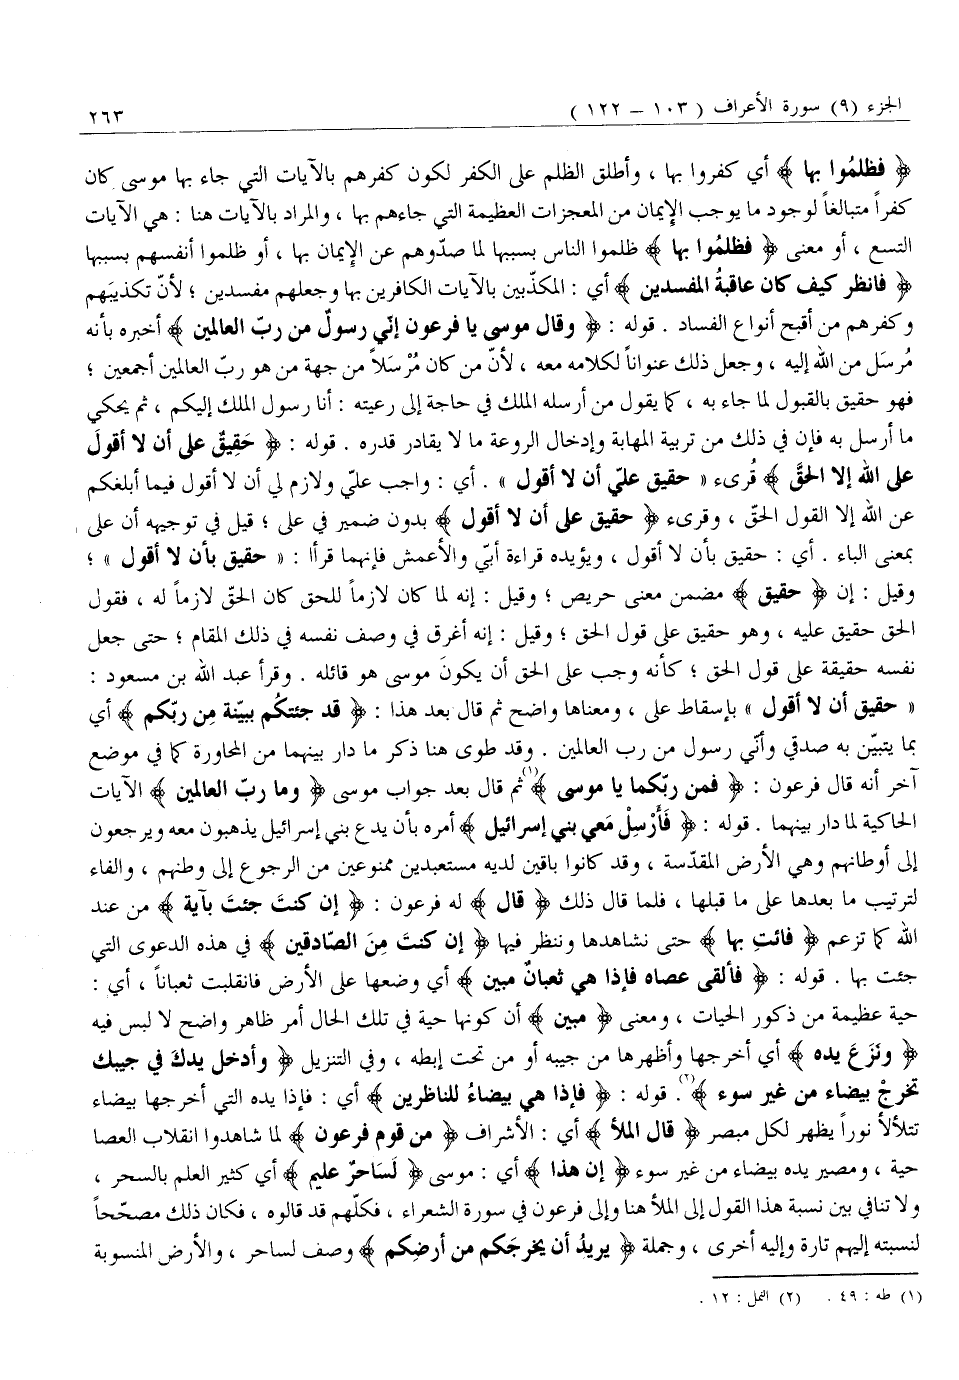 الجزء (٩) سورة الأعراف (١٠٣ – ١٢٢) ٢٦٣
﴿ فظلمُوا بها ﴾ أي كفروا بها ، وأطلق الظلم على الكفر لكون كفرهم بالآيات التي جاء بها موسى كان
كفراً متبالغاً لوجود ما يوجب الإيمان من المعجزات العظيمة التي جاءهم بها ، والمراد بالآيات هنا : هي الآيات
التسع ، أو معنى ﴿ فظلمُوا بها ﴾ ظلموا الناس بسببها لما صدّوهم عن الإيمان بها ، أو ظلموا أنفسهم بسببها
﴿ فانظر كيف كان عاقبةُ المفسدين ﴾ أي : المكذّبين بالآيات الكافرين بها وجعلهم مفسدين ؛ لأنّ تكذيبَهم
وكفرهم من أقبح أنواع الفساد . قوله : ﴿ وقال موسى يا فرعون إنّي رسولٌ من ربّ العالمين ﴾ أخبره بأنه
مُرسَل من الله إليه ، وجعل ذلك عنواناً لكلامه معه ، لأنّ من كان مُرْسَلاً من جهة من هو ربّ العالمين أجمعين ؛
فهو حقيق بالقبول لما جاء به ، كما يقول من أرسله الملك في حاجة إلى رعيته : أنا رسول الملك إليكم ، ثم يحكي
ما أرسل به فإن في ذلك من تربية المهابة وإدخال الروعة ما لا يقادر قدره . قوله : ﴿ حَقِيقٌ على أن لا أقولَ
على الله إلا الحَقَّ ﴾ قُرىء « حقيق عليّ أن لا أقول » . أي : واجب عليّ ولازم لي أن لا أقول فيما أبلغكم
عن الله إلا القول الحقّ ، وقرىء ﴿ حقيق على أن لا أقول ﴾ بدون ضمير في على ؛ قيل في توجيهه أن على
بمعنى الباء . أي : حقيق بأن لا أقول ، ويؤيده قراءة أبيّ والأعمش فإنهما قرأا : « حقيق بأن لا أقول » ؛
وقيل : إن ﴿ حقيق ﴾ مضمن معنى حريص ؛ وقيل : إنه لما كان لازماً للحق كان الحقّ لازماً له ، فقول
الحق حقيق عليه ، وهو حقيق على قول الحق ؛ وقيل : إنه أغرق في وصف نفسه في ذلك المقام ؛ حتى جعل
نفسه حقيقة على قول الحق ؛ كأنه وجب على الحق أن يكونَ موسى هو قائله . وقرأ عبد الله بن مسعود :
« حقيق أن لا أقول » بإسقاط على ، ومعناها واضح ثم قال بعد هذا : ﴿ قد جئتكُم ببيّنة مِن ربّكم ﴾ أي
بما يتبيّن به صدقي وأنّي رسول من رب العالمين . وقد طوى هنا ذكر ما دار بينهما من المحاورة كما في موضع
آخر أنه قال فرعون : ﴿ فمن ربّكما يا موسى ﴾(١) ثم قال بعد جواب موسى ﴿ وما ربّ العالمين ﴾ الآيات
الحاكية لما دار بينهما . قوله : ﴿ فَأَرْسِلْ مَعي بني إسرائيل ﴾ أمره بأن يدع بني إسرائيل يذهبون معه ويرجعون
إلى أوطانهم وهي الأرض المقدّسة ، وقد كانوا باقين لديه مستعبدين ممنوعين من الرجوع إلى وطنهم ، والفاء
لترتيب ما بعدها على ما قبلها ، فلما قال ذلك ﴿ قال ﴾ له فرعون : ﴿ إن كنتَ جئتَ بآية ﴾ من عند
الله كما تزعم ﴿ فائتِ بها ﴾ حتى نشاهدها وننظر فيها ﴿ إن كنتَ مِنَ الصّادقين ﴾ في هذه الدعوى التي
جئت بها . قوله : ﴿ فألقى عصاه فإذا هي ثعبانٌ مبين ﴾ أي وضعها على الأرض فانقلبت ثعباناً ، أي :
حية عظيمة من ذكور الحيات ، ومعنى ﴿ مبين ﴾ أن كونها حية في تلك الحال أمر ظاهر واضح لا لبس فيه
﴿ ونَزَعَ يده ﴾ أي أخرجها وأظهرها من جيبه أو من تحت إبطه ، وفي التنزيل ﴿ وأدخل يدكَ في جيبك
تخرجْ بيضاء من غير سوء ﴾(٢) . قوله : ﴿ فإذا هي بيضاءُ للناظرين ﴾ أي : فإذا يده التي أخرجها بيضاء
تتلألأ نوراً يظهر لكل مبصر ﴿ قال الملأ ﴾ أي : الأشراف ﴿ من قوم فرعون ﴾ لما شاهدوا انقلاب العصا
حية ، ومصير يده بيضاء من غير سوء ﴿ إن هذا ﴾ أي : موسى ﴿ لَساحرٌ عليم ﴾ أي كثير العلم بالسحر ،
ولا تنافي بين نسبة هذا القول إلى الملأ هنا وإلى فرعون في سورة الشعراء ، فكلّهم قد قالوه ، فكان ذلك مصحّحاً
لنسبته إليهم تارة وإليه أخرى ، وجملة ﴿ يريدُ أن يخرجَكم من أرضِكم ﴾ وصف لساحر ، والأرض المنسوبة
(١) طه : ٤٩ . (٢) النمل : ١٢ .